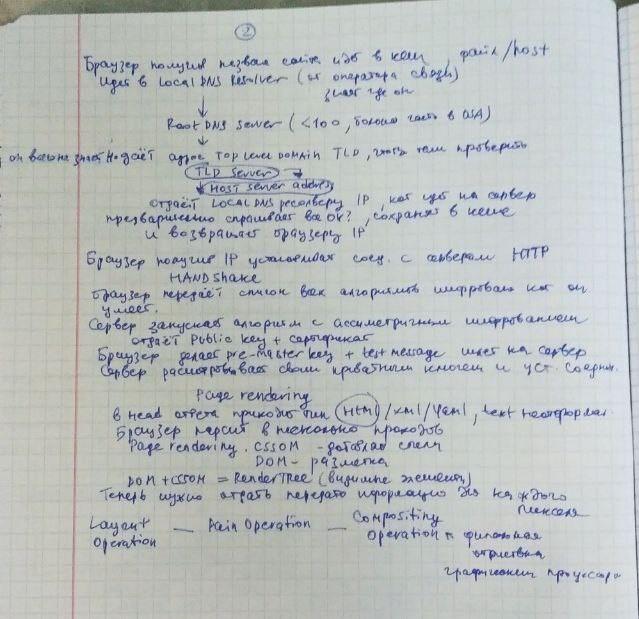 2
Браузер получив назван сайта идёт в кеш, файл/host
идёт в Local DNS Resolver (от оператора связи)
знает где он
Root DNS Server (<100, больш часть в USA)
он всего не знает но даёт адрес TOP Level DOMAIN TLD, чтобы там проверить
TLD Server
HOST Server address
отдаёт LOCAL DNS ресолверу IP, кот идёт на сервер
предварительно спрашивает все ок?, сохраняет в кеше
и возвращает браузеру IP
Браузер получив IP устанавливает соед. с сервером HTTP
HANDShake
Браузер передаёт список всех алгоритмов шифрован кот он
умеет.
Сервер запускает алгоритм с ассиметричным шифрованием
отдаёт Public key + сертификат
Браузер делает pre-master key + test message шлет на сервер
Сервер расшифровывает своим приватным ключом и уст. соедин.
Page rendering
в Head ответа приходит тип HTML/xml/Yaml, text неотформат.
Браузер парсит в несколько проходов
Page rendering. CSSOM - добавляет стили
DOM - разметка
DOM + CSSOM = RenderTree (видимые элементы)
Теперь нужно отдать информацию для каждого
пикселя
Layout — Pain Operation — Compositing
Operation Operation финальная
отрисовка
графическом процессоре